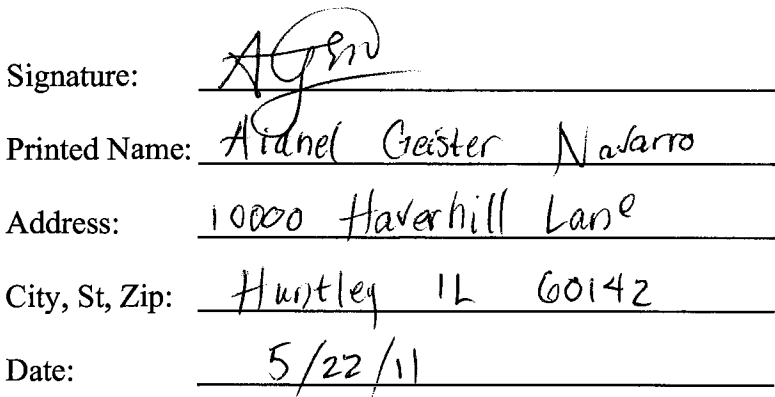 Signature: AGen
Printed Name: Aidnel Geister Navarro
Address: 10000 Haverhill Lane
City, St, Zip: Huntley IL 60142
Date: 5/22/11